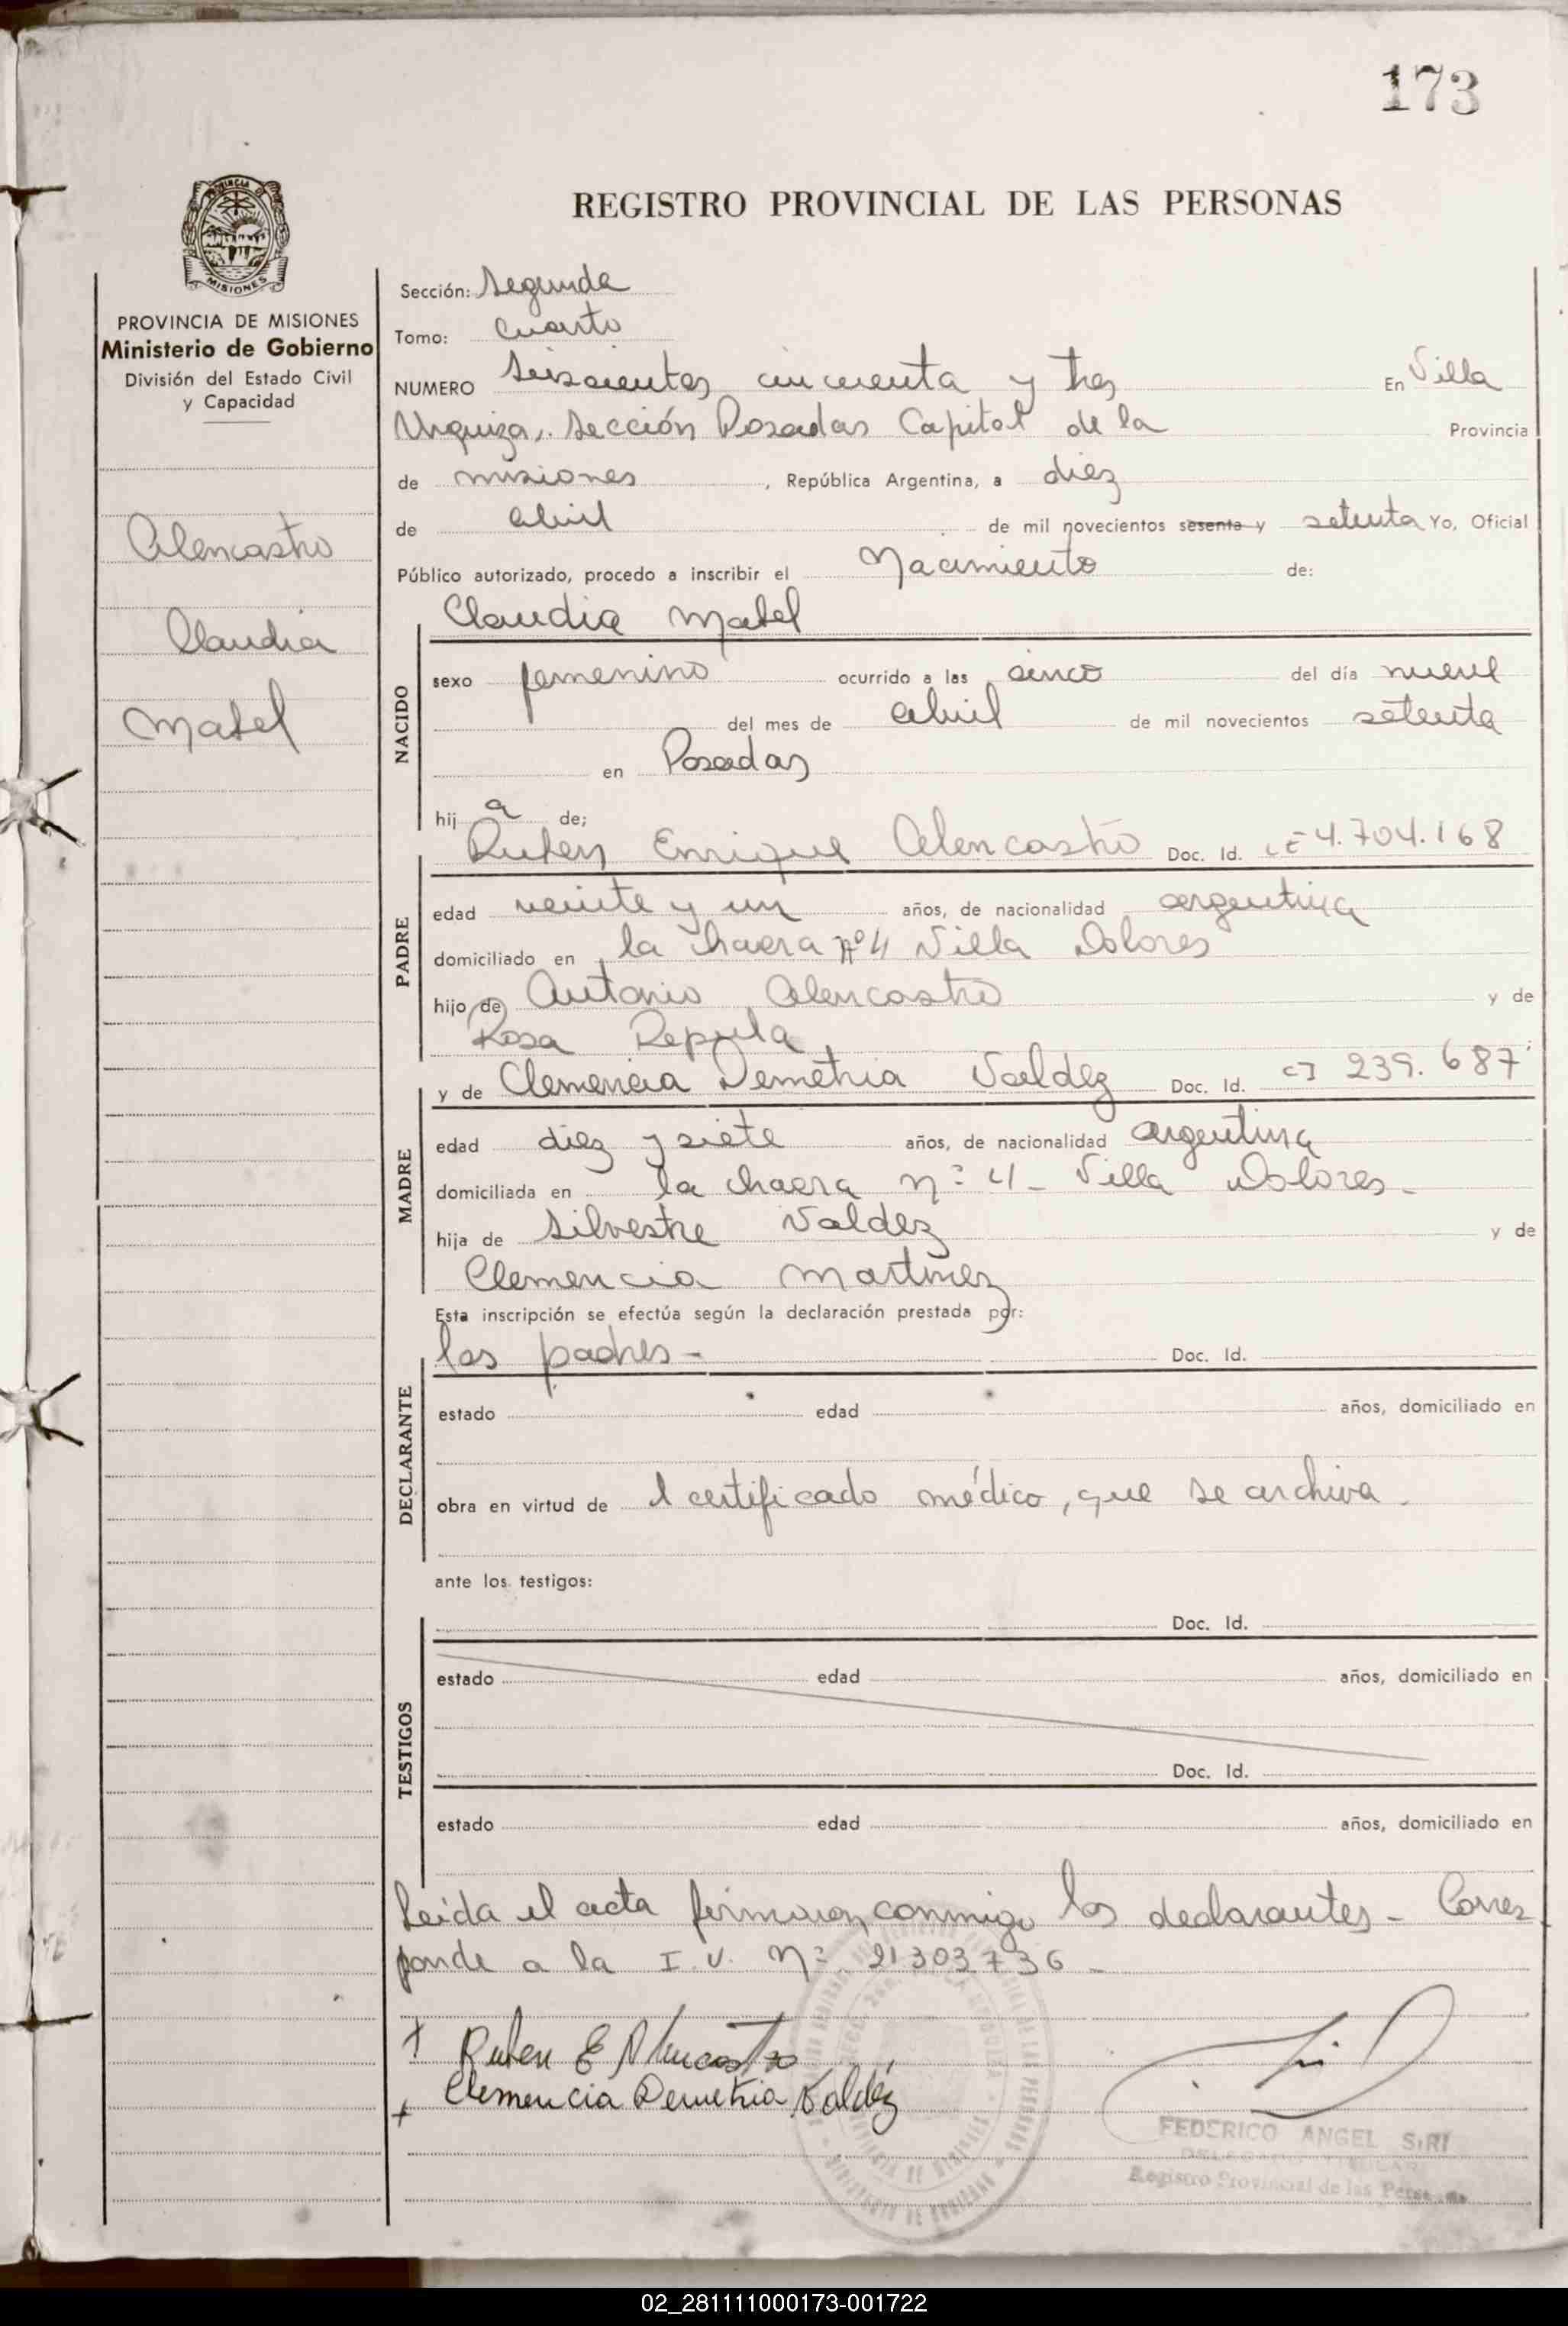 173
PROVINCIA DE
MISIONES
PROVINCIA DE MISIONES
Ministerio de Gobierno
División del Estado Civil
y Capacidad
Alencastro
Claudia
Mabel
REGISTRO PROVINCIAL DE LAS PERSONAS
Sección: Segunda
Tomo: Cuarto
NUMERO Seiscientos cincuenta y tres En Villa
Urquiza, Sección Posadas Capital de la Provincia
de misiones, República Argentina, a diez
de abril de mil novecientos sesenta y setenta Yo, Oficial
Público autorizado, procedo a inscribir el Nacimiento de:
Claudia Mabel
NACIDO
sexo femenino ocurrido a las cinco del día nueve
del mes de abril de mil novecientos setenta
en Posadas
hij a de;
Ruben Enrique Alencastro Doc. Id. LE 4.704.168
PADRE
edad veinte y un años, de nacionalidad argentina
domiciliado en la chacra Nº 4 Villa Dolores
hijo de Antonio Alencastro y de
Rosa Repula
y de Clemencia Demetria Valdez Doc. Id. CI 239.687
MADRE
edad diez y siete años, de nacionalidad argentina
domiciliada en la chacra nº 4 - Villa Dolores -
hija de Silvestre Valdez y de
Clemencia Martinez
Esta inscripción se efectúa según la declaración prestada por:
los padres - Doc. Id.
DECLARANTE
estado edad años, domiciliado en
obra en virtud de l certificado médico, que se archiva.
ante los testigos:
Doc. Id.
TESTIGOS
estado edad años, domiciliado en
Doc. Id.
estado edad años, domiciliado en
Leida el acta firmaron conmigo los declarantes - Corres
ponde a la I. U. Nº 21303736 -
+ Ruben E Alencastro
+ Clemencia Demetria Valdéz
FEDERICO ANGEL SIRI
Registro Provincial de las Personas
02_281111000173-001722